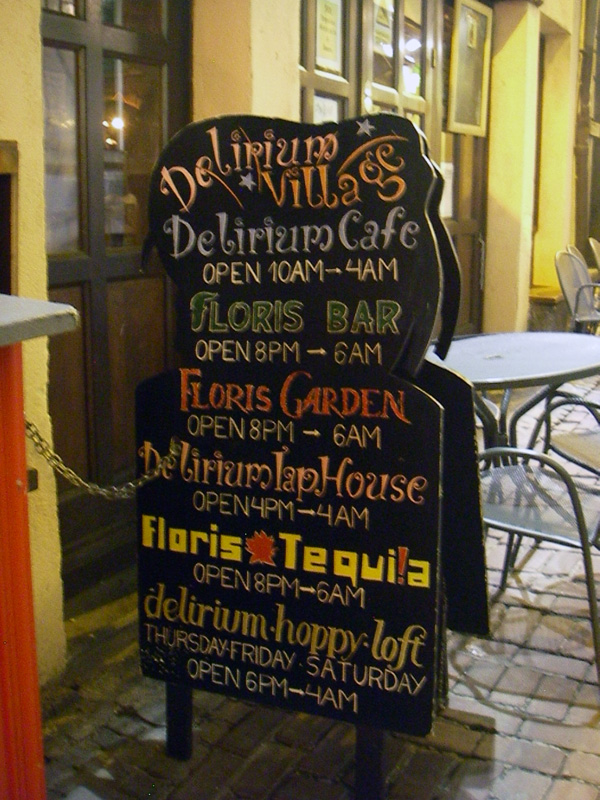 Delirium
Village
Delirium Cafe
OPEN 10AM→4AM
FLORIS BAR
OPEN 8PM → 6AM
FLORIS GARDEN
OPEN 8PM → 6AM
Delirium Tap House
OPEN 4PM→4AM
Floris Tequila
OPEN 8PM→6AM
delirium·hoppy·loft
THURSDAY·FRIDAY·SATURDAY
OPEN 6PM→4AM